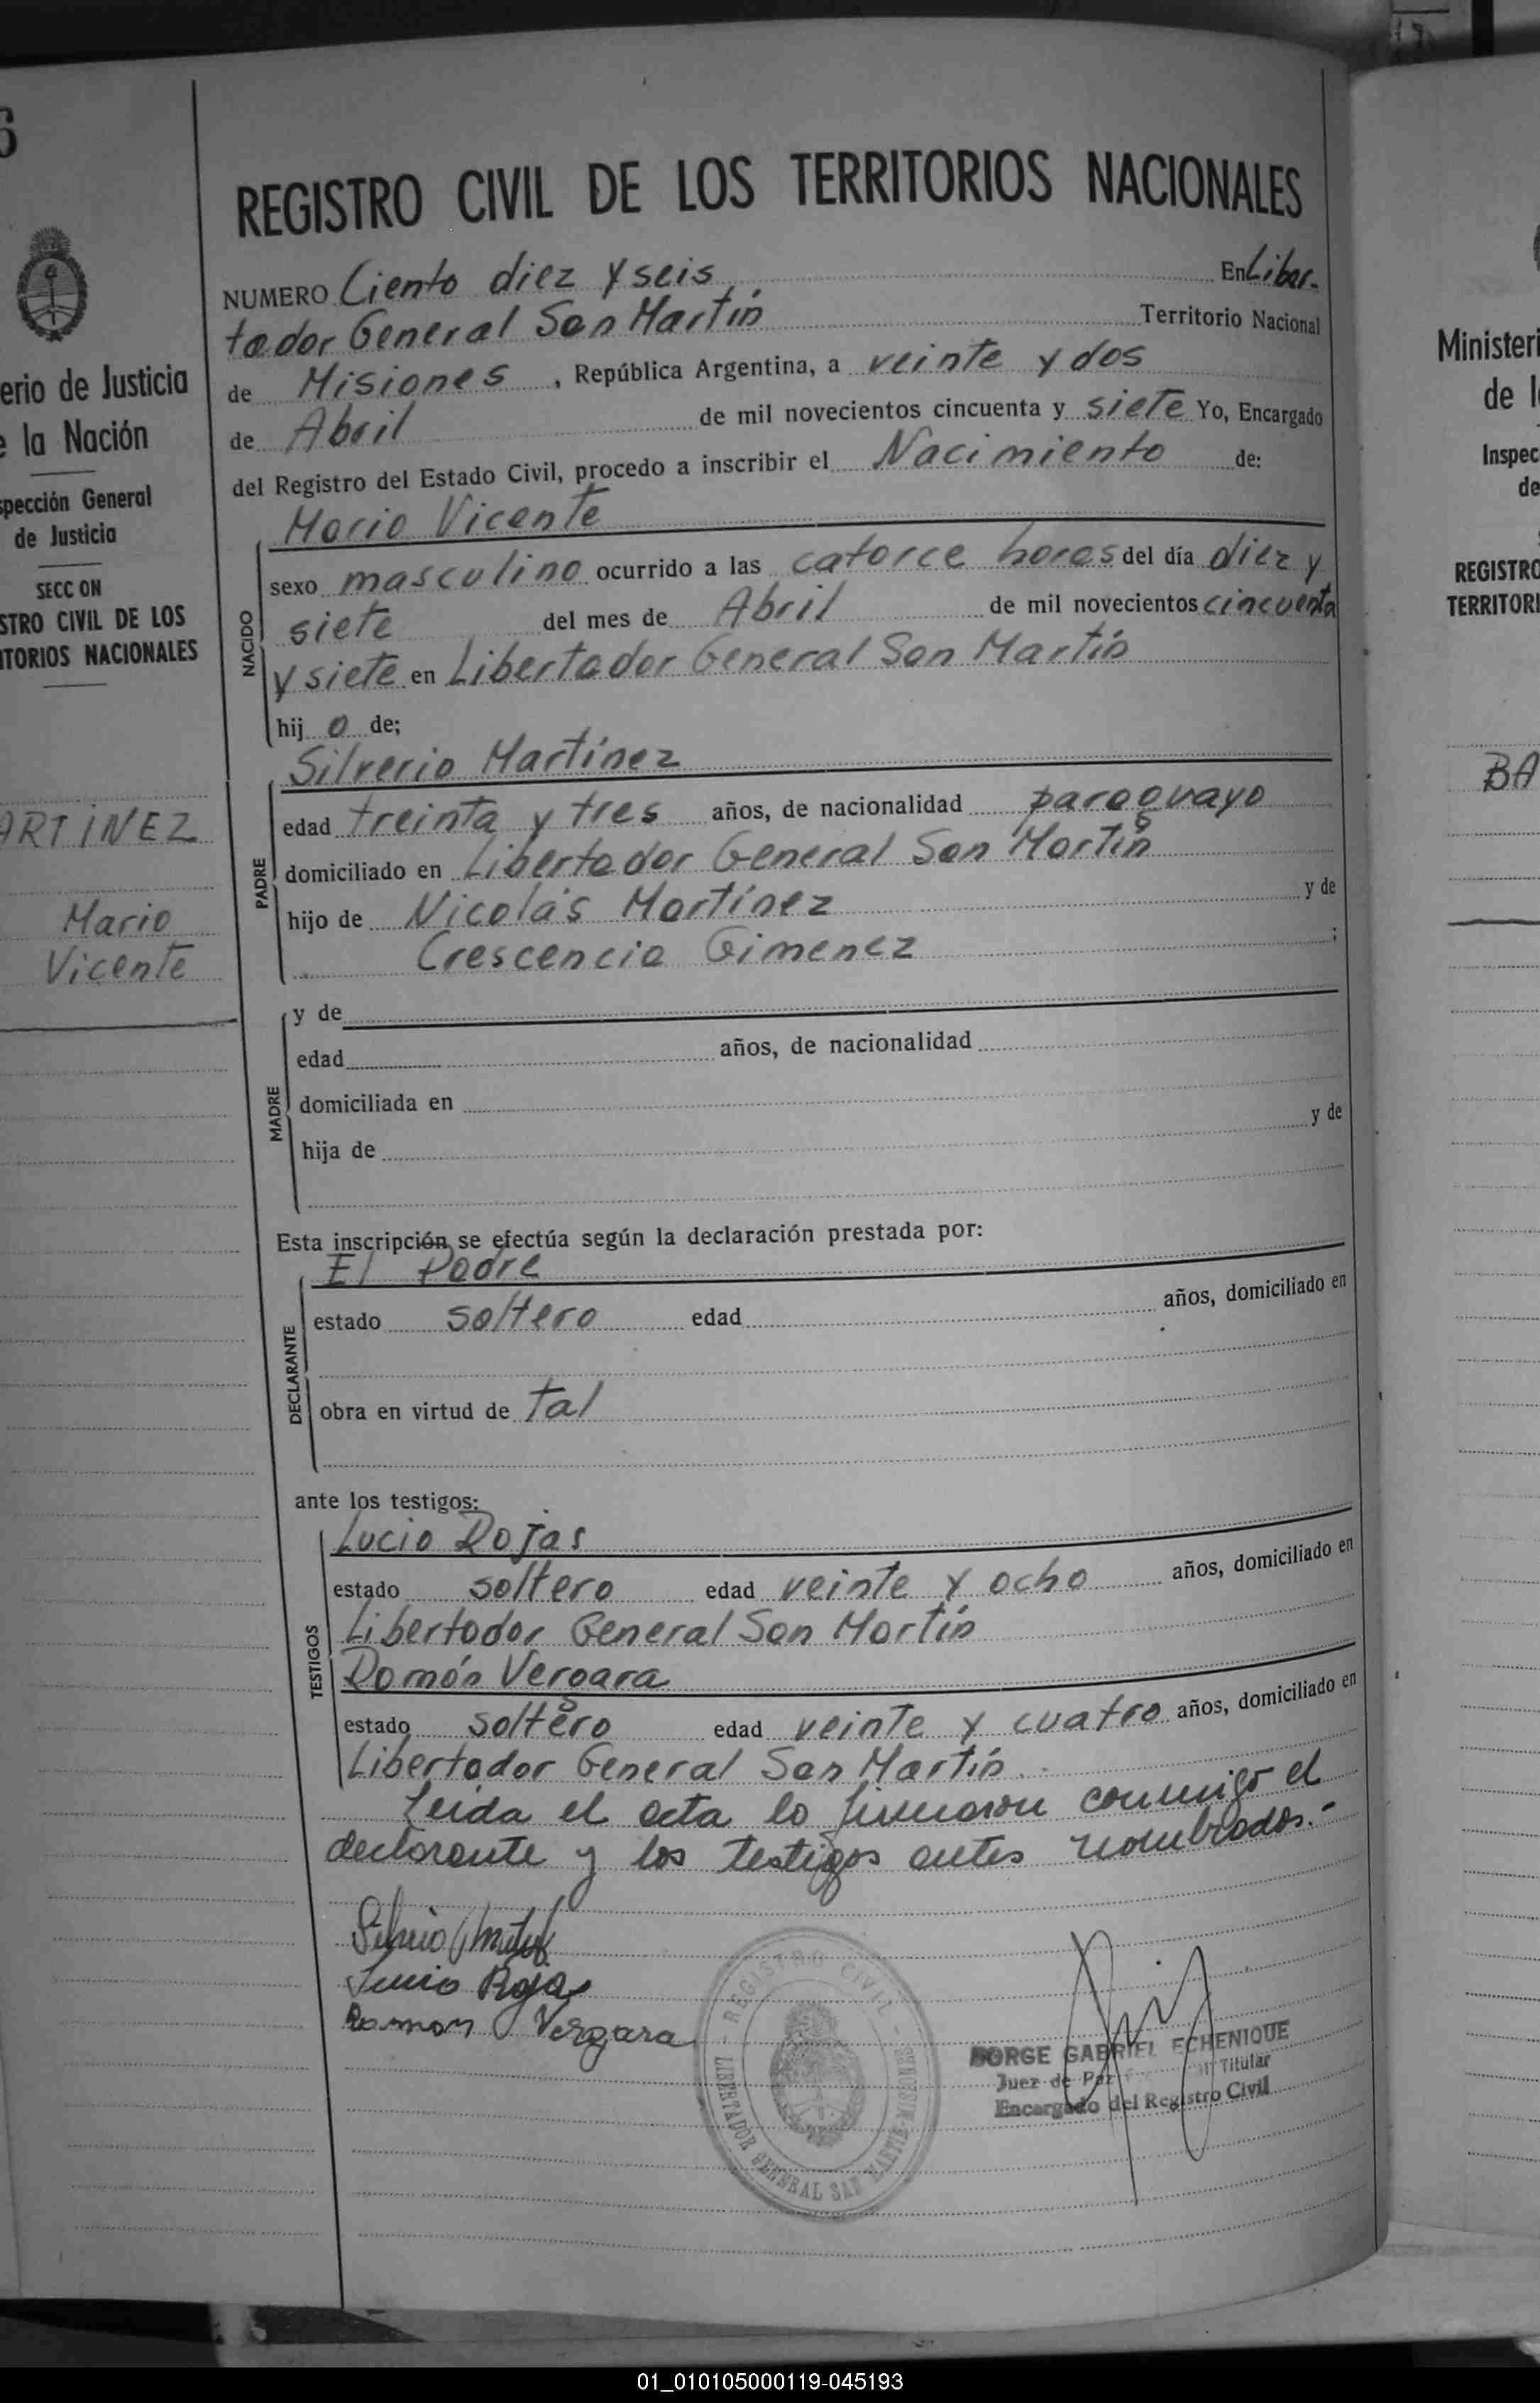 6
erio de Justicia
e la Nación
spección General
de Justicia
SECC ON
STRO CIVIL DE LOS
ITORIOS NACIONALES
ARTINEZ
Mario
Vicente
REGISTRO CIVIL DE LOS TERRITORIOS NACIONALES
NUMERO Ciento diez y seis En Liber-
tador General San Martín Territorio Nacional
de Misiones, República Argentina, a veinte y dos
de Abril de mil novecientos cincuenta y siete Yo, Encargado
del Registro del Estado Civil, procedo a inscribir el Nacimiento de:
Mario Vicente
NACIDO
sexo masculino ocurrido a las catorce horas del día diez y
siete del mes de Abril de mil novecientos cincuenta
y siete en Libertador General San Martín
hij o de;
Silverio Martínez
PADRE
edad treinta y tres años, de nacionalidad paraguayo
domiciliado en Libertador General San Martín
hijo de Nicolás Martínez y de
Crescencia Gimenez ;
MADRE
y de
edad años, de nacionalidad
domiciliada en
hija de y de
Esta inscripción se efectúa según la declaración prestada por:
El Padre
DECLARANTE
estado soltero edad años, domiciliado en
obra en virtud de tal
ante los testigos:
Lucio Rojas
TESTIGOS
estado soltero edad veinte y ocho años, domiciliado en
Libertador General San Martín
Ramón Vergara
estado soltero edad veinte y cuatro años, domiciliado en
Libertador General San Martín
Leida el acta lo firmaron conmigo el
declarante y los testigos antes nombrados.-
Lucio Rojas
Ramon Vergara
REGISTRO CIVIL
LIBERTADOR GENERAL SAN MARTIN-MISIONES
JORGE GABRIEL ECHENIQUE
Juez de Paz Titular
Encargado del Registro Civil
Ministeri
de l
Inspec
de
REGISTRO
TERRITORI
BA
01_010105000119-045193